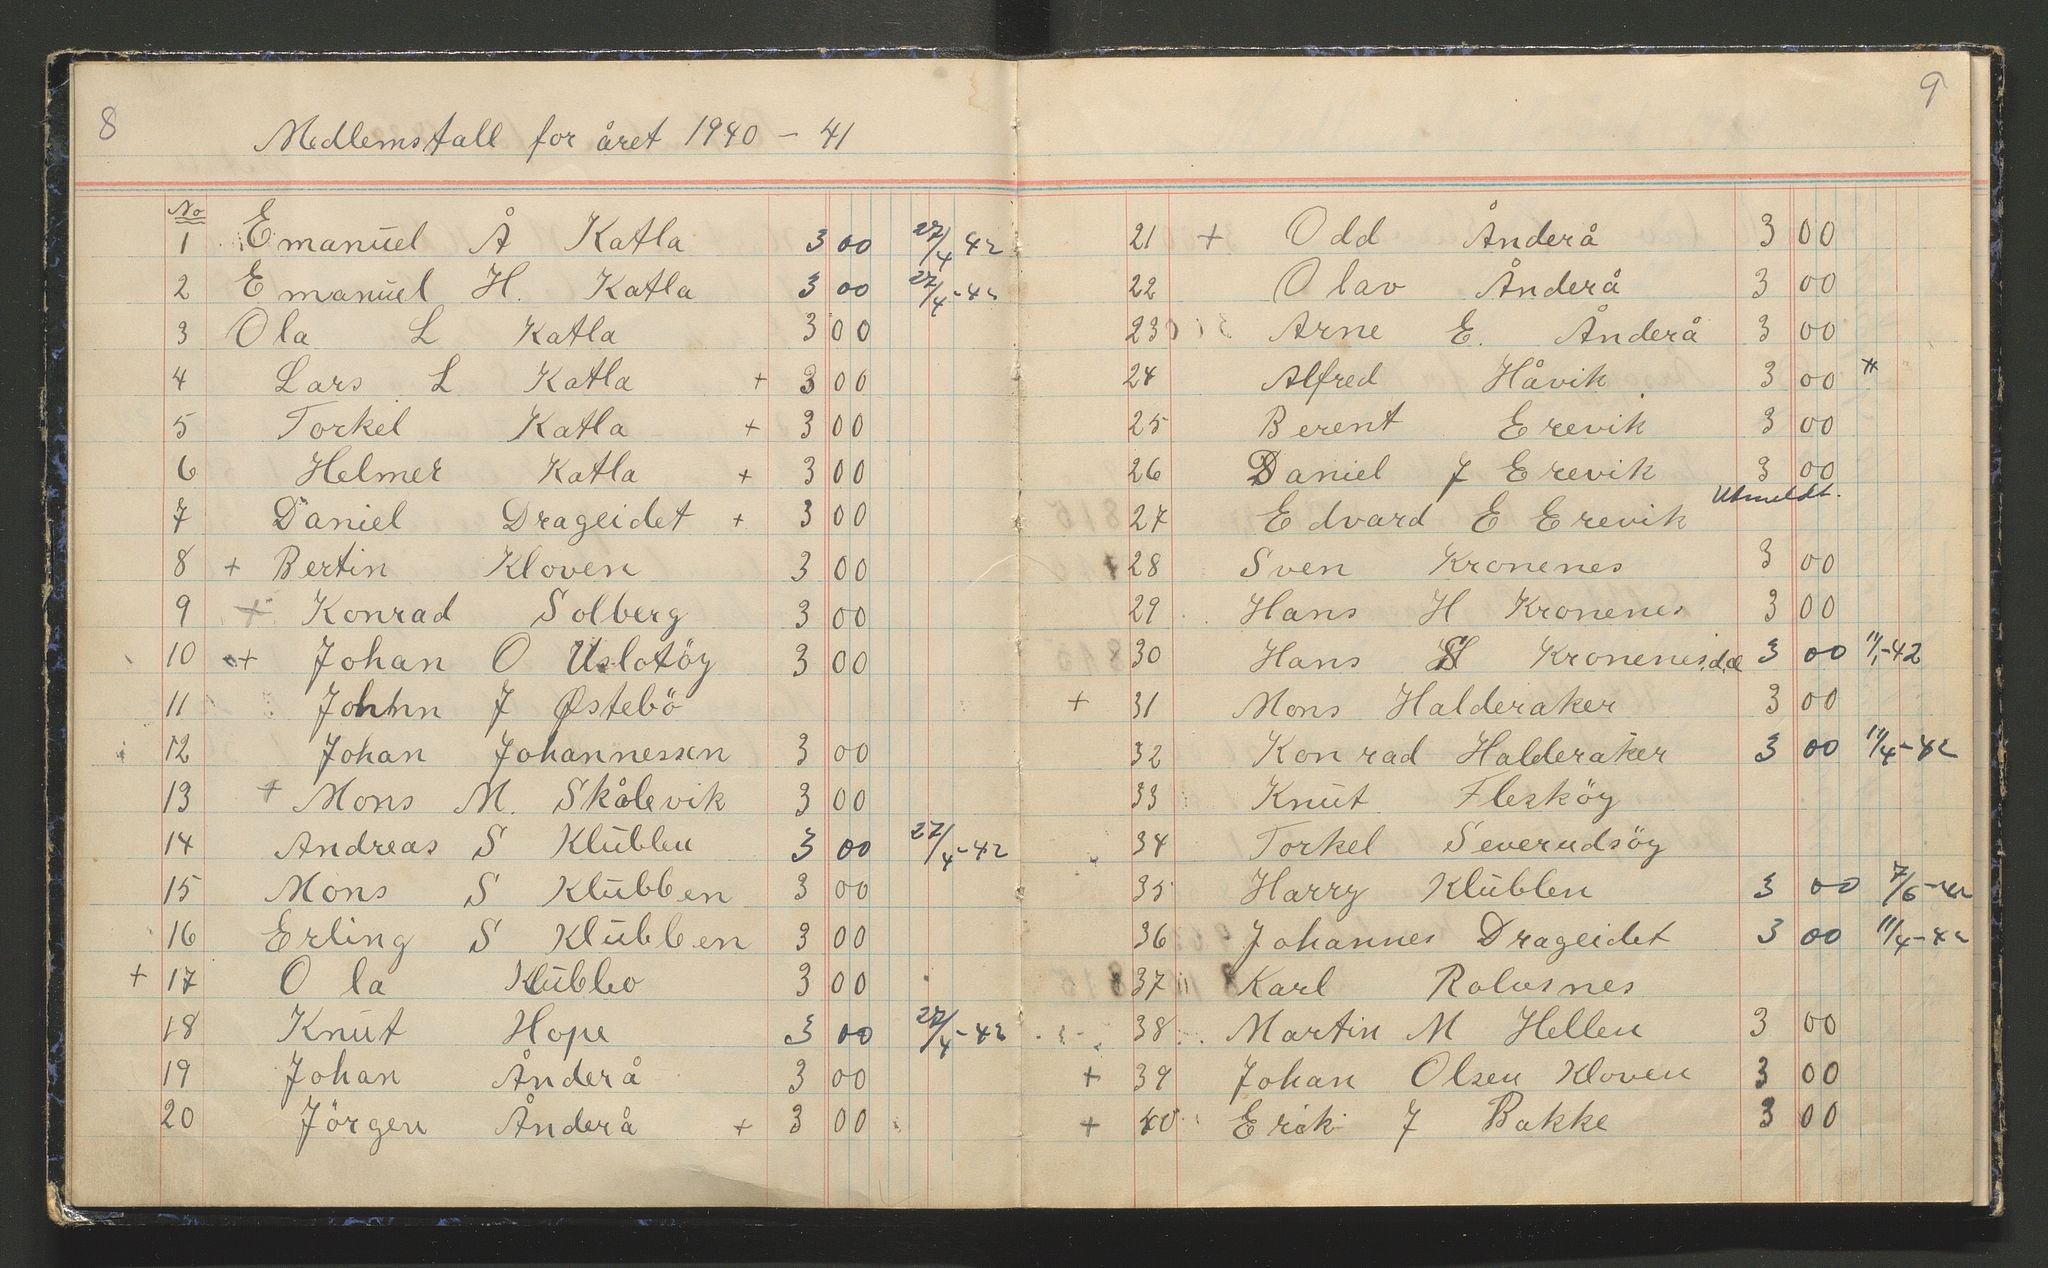 8
Medlemstall for året 1940 - 41
No
1 Emanuel Å Katla 3 00 27/4 42
2 Emanuel H. Katla 3 00 27/4-42
3 Ola L Katla 3 00
4 Lars L Katla + 3 00
5 Torkel Katla + 3 00
6 Helmer Katla + 3 00
7 Daniel Drageidet + 3 00
8 + Bertin Kloven 3 00
9 + Konrad Solberg 3 00
10 + Johan O Uslotöy 3 00
11 Johan J Østebö
12 Johan Johannessen 3 00
13 + Mons M. Skålevik 3 00
14 Andreas S Klübben 3 00 27/4-42
15 Mons S Klübben 3 00
16 Erling S Klübben 3 00
+ 17 Ola Klübbo 3 00
18 Knüt Hope 3 00 27/4-42
19 Johan Ånderå 3 00
20 Jörgen Ånderå + 3 00
9
21 + Odd Ånderå 3 00
22 Olav Ånderå 3 00
23 Arne E. Ånderå 3 00
24 Alfred Håvik 3 00
25 Berent Erevik 3 00
26 Daniel J Erevik 3 00
27 Edvard E Erevik Utmeldt.
28 Sven Kronenes 3 00
29 Hans H Kronenes 3 00
30 Hans Kronenes 3 00 -42
+ 31 Mons Halderaker 3 00
32 Konrad Halderaker 3 00 11/4-42
33 Knüt Flesköy
34 Torkel Severudsöy
35 Harry Klübben 3 00 7/6-42
36 Johannes Drageidet 3 00 11/4-42
37 Karl
38 Martin M Hellen 3 00
+ 39 Johan Olsen Kloven 3 00
+ 40 Erik J Bakke 3 00